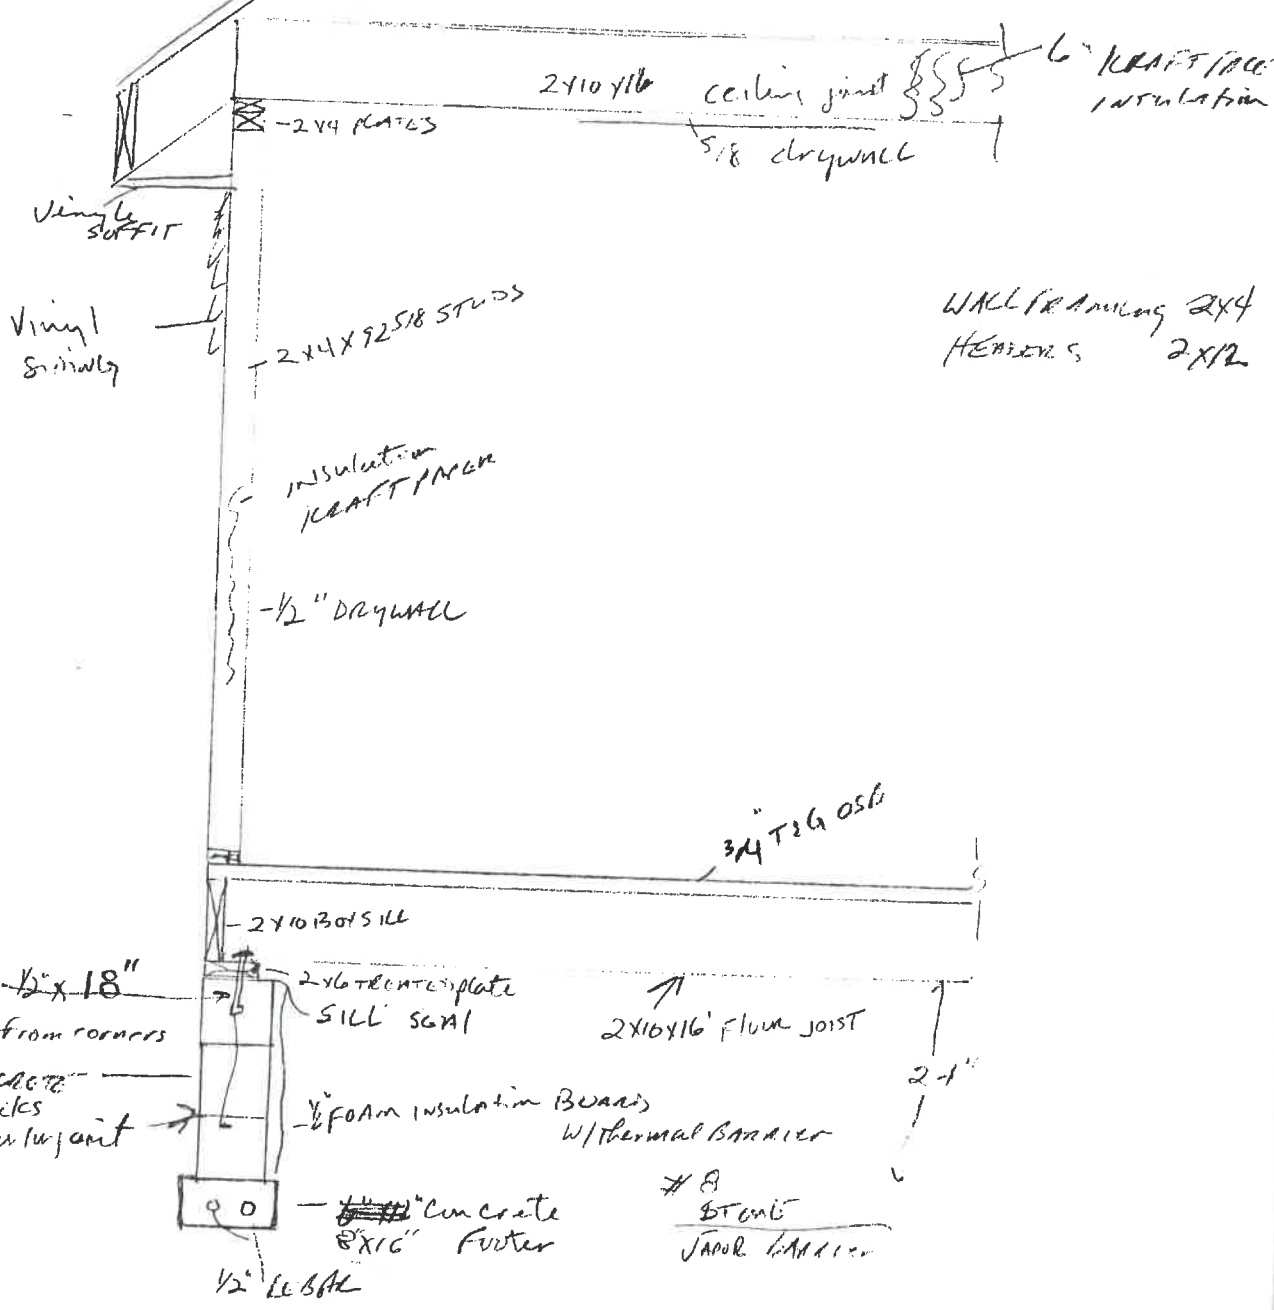 2x10x16 ceiling joist
6" KRAFT FACE
INSULATION
-2x4 PLATES
5/8 drywall
Vinyle
SOFFIT
Vinyl
2x4x92 5/8 STUDS
WALL FRAMING 2x4
HEADERS 2x12
INSULATION
KRAFT PAPER
-1/2" DRYWALL
3/4" T&G OSB
-2x10 BOX SILL
1/2" x 18"
from corners
2x6 TREATED plate
SILL SEAL
2x10x16' Floor JOIST
2-1"
FOAM INSULATION BOARD
W/Thermal BARRIER
Concrete
8"x16" Footer
#8
STONE
VAPOR BARRIER
1/2" REBAR